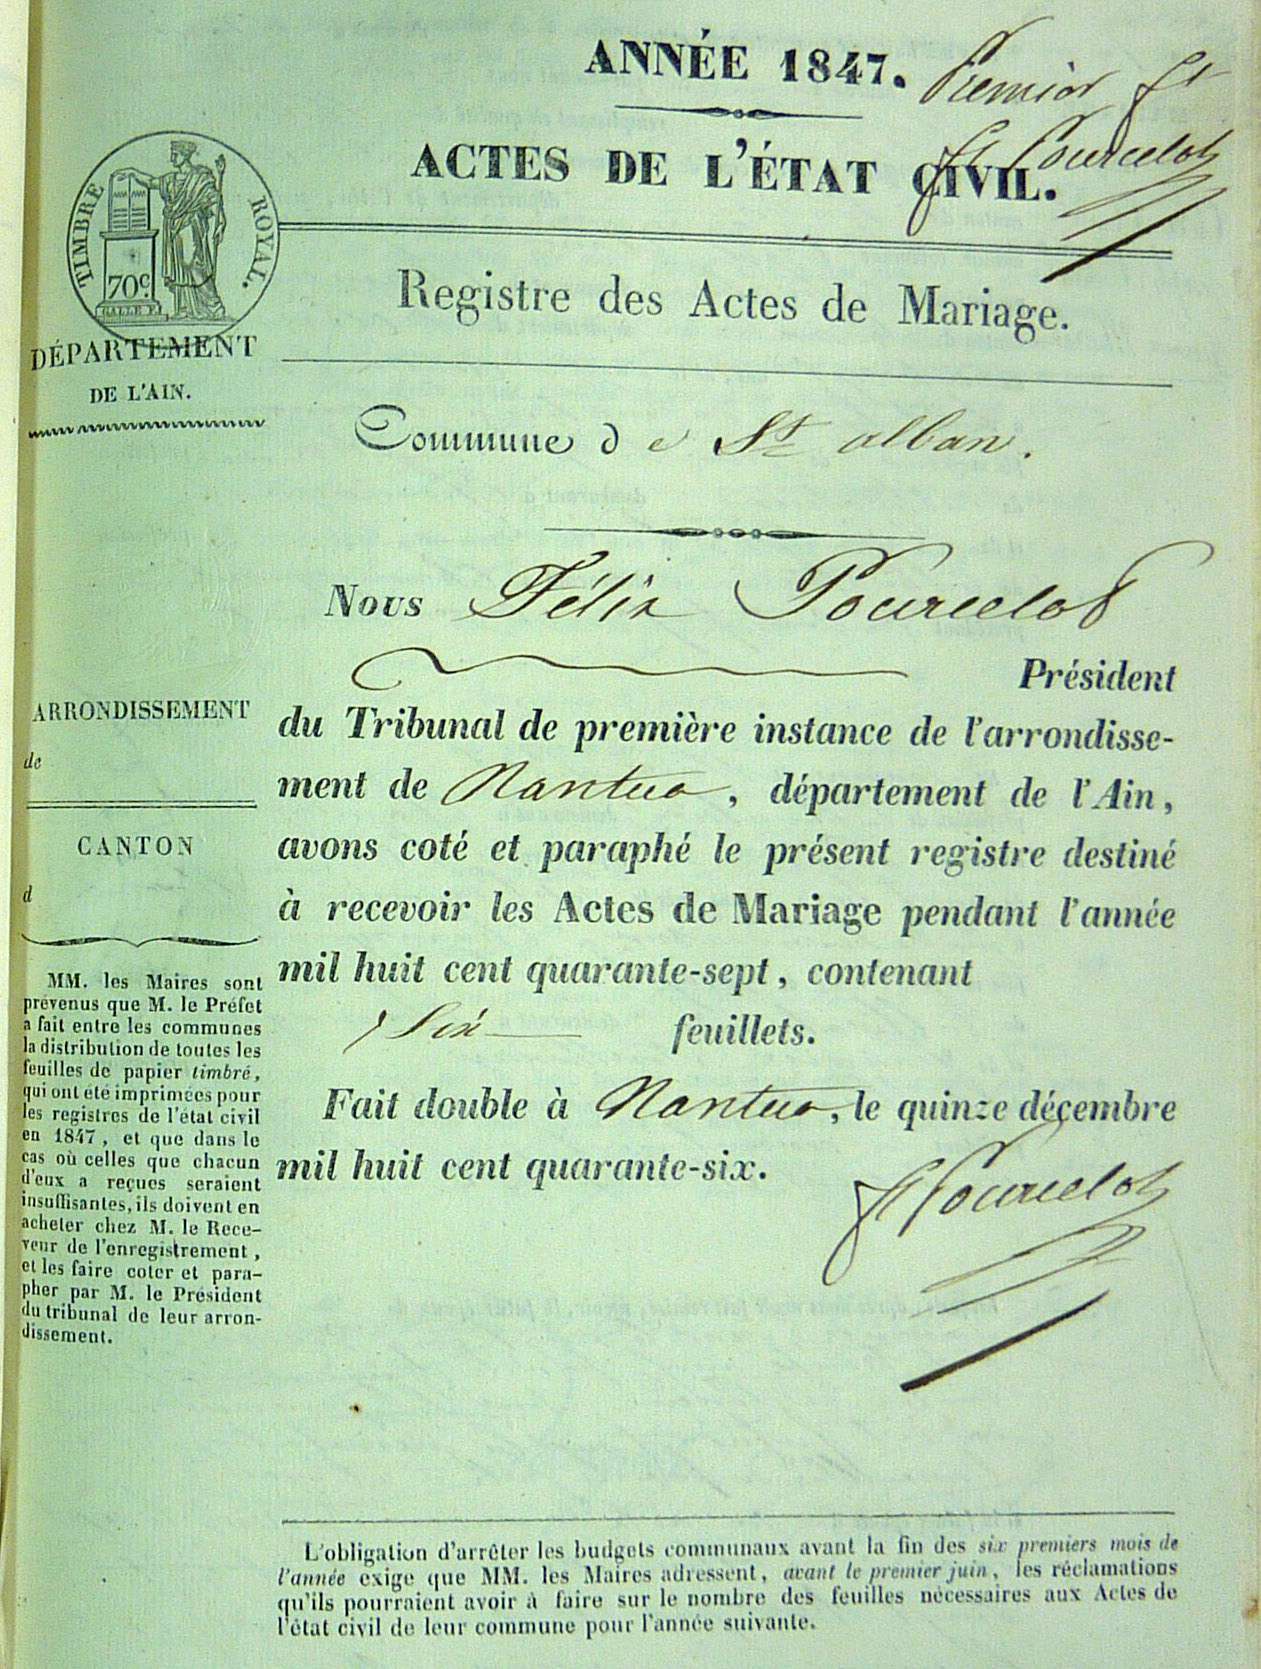 ANNÉE 1847.
Premier ft
ACTES DE L'ÉTAT CIVIL.
F Pourcelot
TIMBRE ROYAL.
70c.
DÉPARTEMENT
DE L'AIN.
Registre des Actes de Mariage.
Commune de St alban.
Nous Félix Pourcelot
Président
du Tribunal de première instance de l'arrondisse-
ment de Nantua, département de l'Ain,
avons coté et paraphé le présent registre destiné
à recevoir les Actes de Mariage pendant l'année
mil huit cent quarante-sept, contenant
Six feuillets.
Fait double à Nantua, le quinze décembre
mil huit cent quarante-six.
F Pourcelot
ARRONDISSEMENT
de
CANTON
d
MM. les Maires sont
prévenus que M. le Préfet
a fait entre les communes
la distribution de toutes les
feuilles de papier timbré,
qui ont été imprimées pour
les registres de l'état civil
en 1847, et que dans le
cas où celles que chacun
d'eux a reçues seraient
insuffisantes, ils doivent en
acheter chez M. le Rece-
veur de l'enregistrement,
et les faire coter et para-
pher par M. le Président
du tribunal de leur arron-
dissement.
L'obligation d'arrêter les budgets communaux avant la fin des six premiers mois de
l'année exige que MM. les Maires adressent, avant le premier juin, les réclamations
qu'ils pourraient avoir à faire sur le nombre des feuilles nécessaires aux Actes de
l'état civil de leur commune pour l'année suivante.